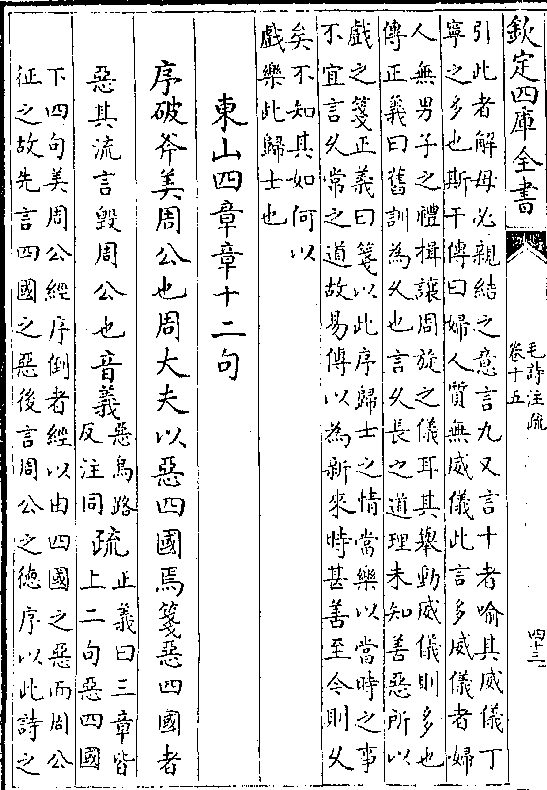 欽定四庫全書
毛詩注疏
卷十五
四十三
引此者解母必親結之意言九又言十者喻其威儀丁
寧之多也斯干傳曰婦人質無威儀此言多威儀者婦
人無男子之禮揖讓周旋之儀耳其舉動威儀則多也
傳正義曰舊訓為久也言久長之道理未知善惡所以
戲之箋正義曰箋以此序歸士之情當樂以當時之事
不宜言久常之道故易傳以為新來時甚善至今則久
矣不知其如何以
戲樂此歸士也
東山四章章十二句
序破斧美周公也周大夫以惡四國焉箋惡四國者
惡其流言毀周公也音義
惡烏路
反注同
疏
正義曰三章皆
上二句惡四國
下四句美周公經序倒者經以由四國之惡而周公
征之故先言四國之惡後言周公之德序以此詩之